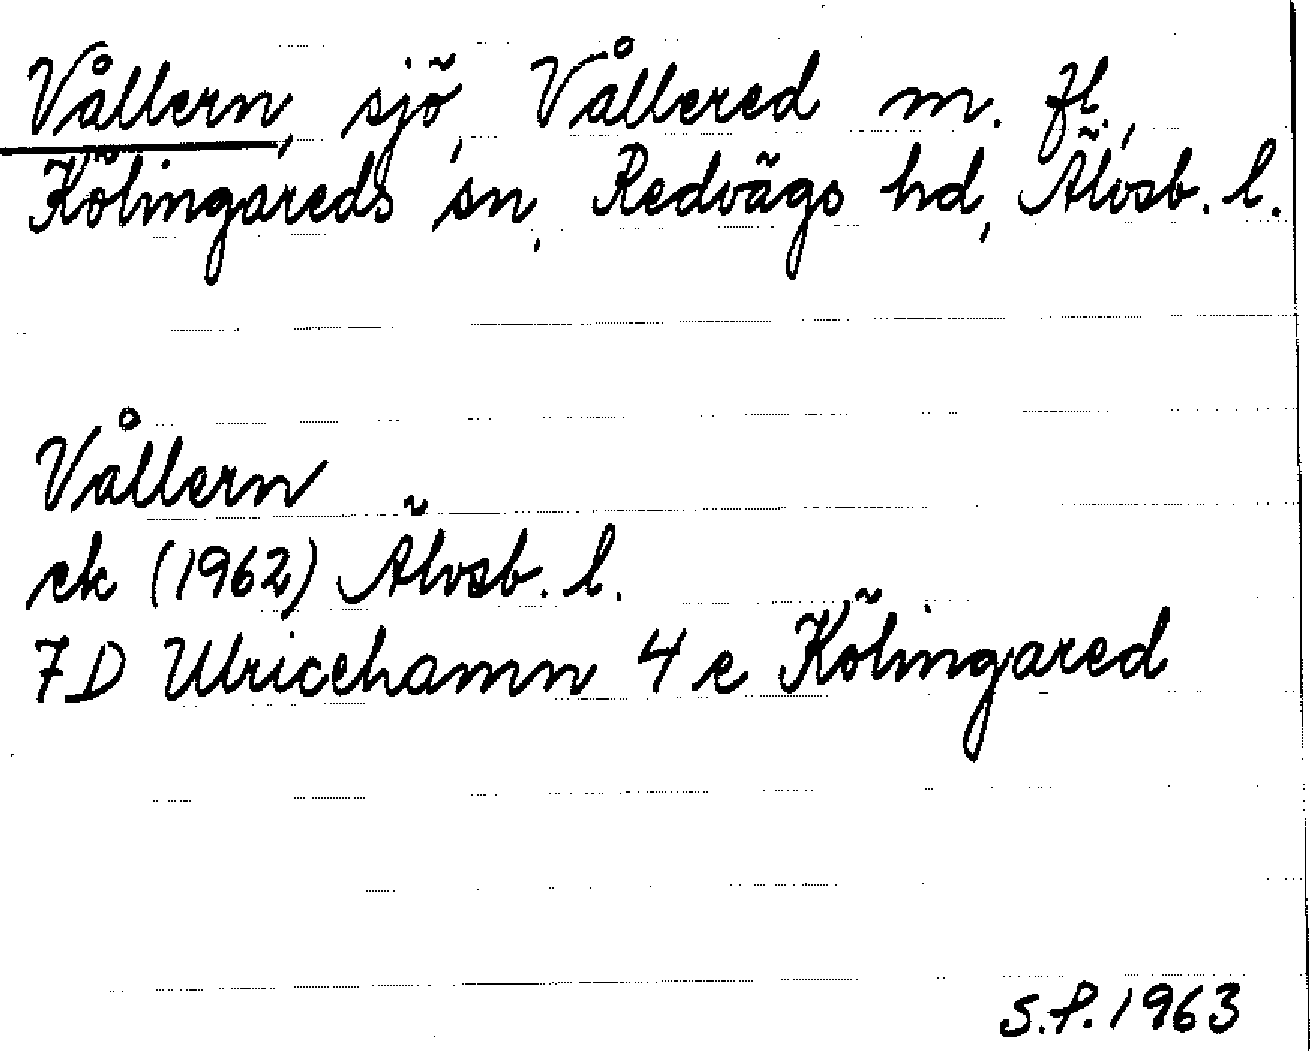 Vållern, sjö, Vållered m. fl.,
Kölingareds sn, Redvägs hd, Älvsb. l.
Vållern
ek (1962) Älvsb. l.
7D Ulricehamn 4 e Kölingared
S.P. 1963